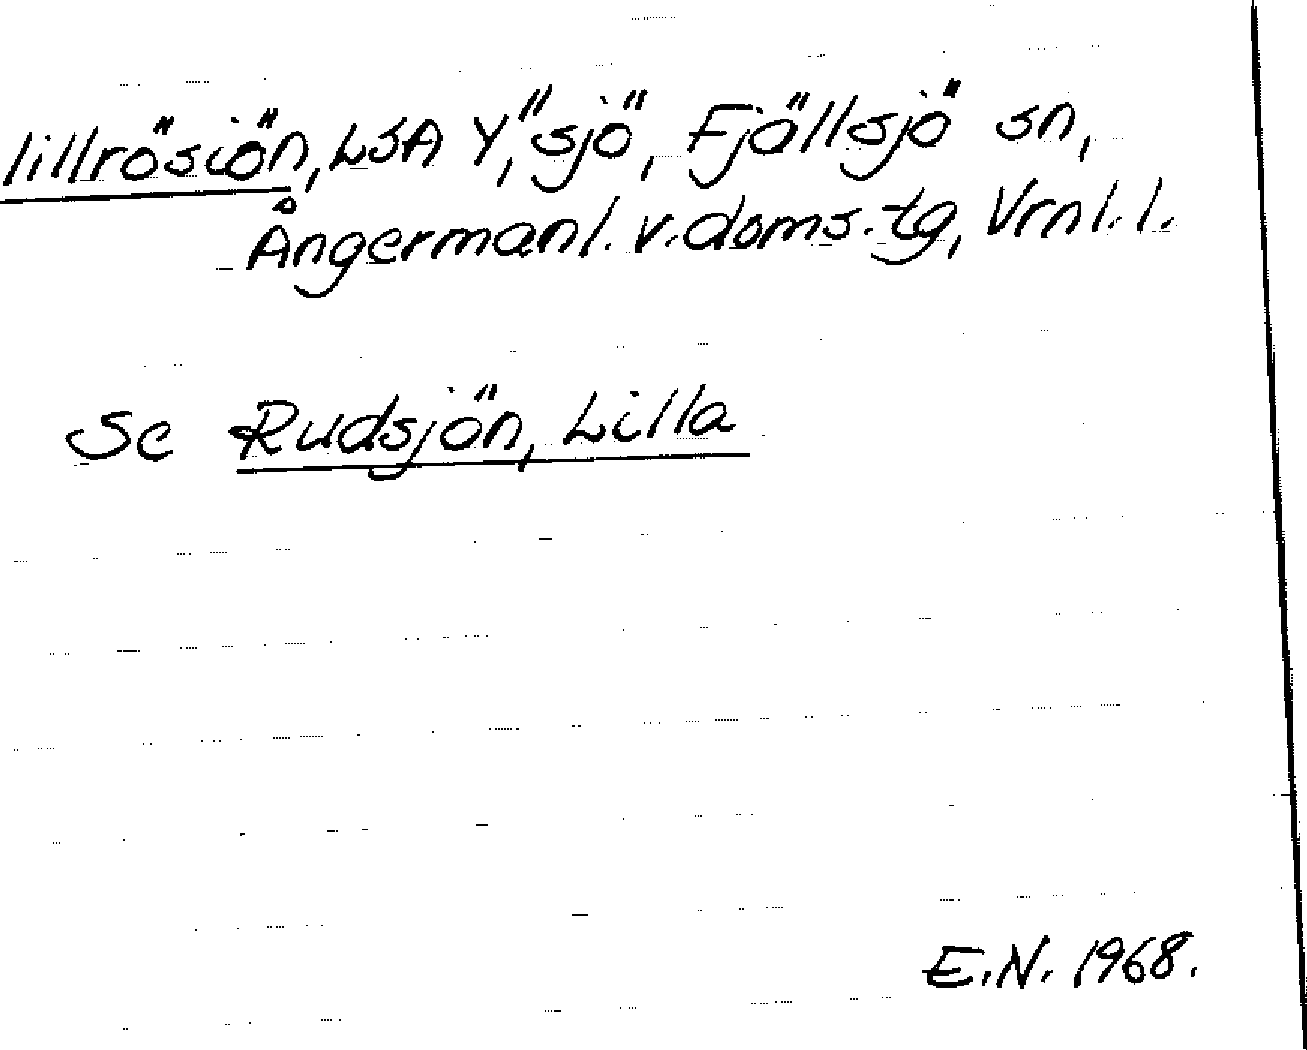 lillrösiön, LSA Y,"sjö", Fjällsjö sn,
Ångermanl. v. doms. tg, Vrnl. l.
Se Rudsjön, Lilla
E.N. 1968.